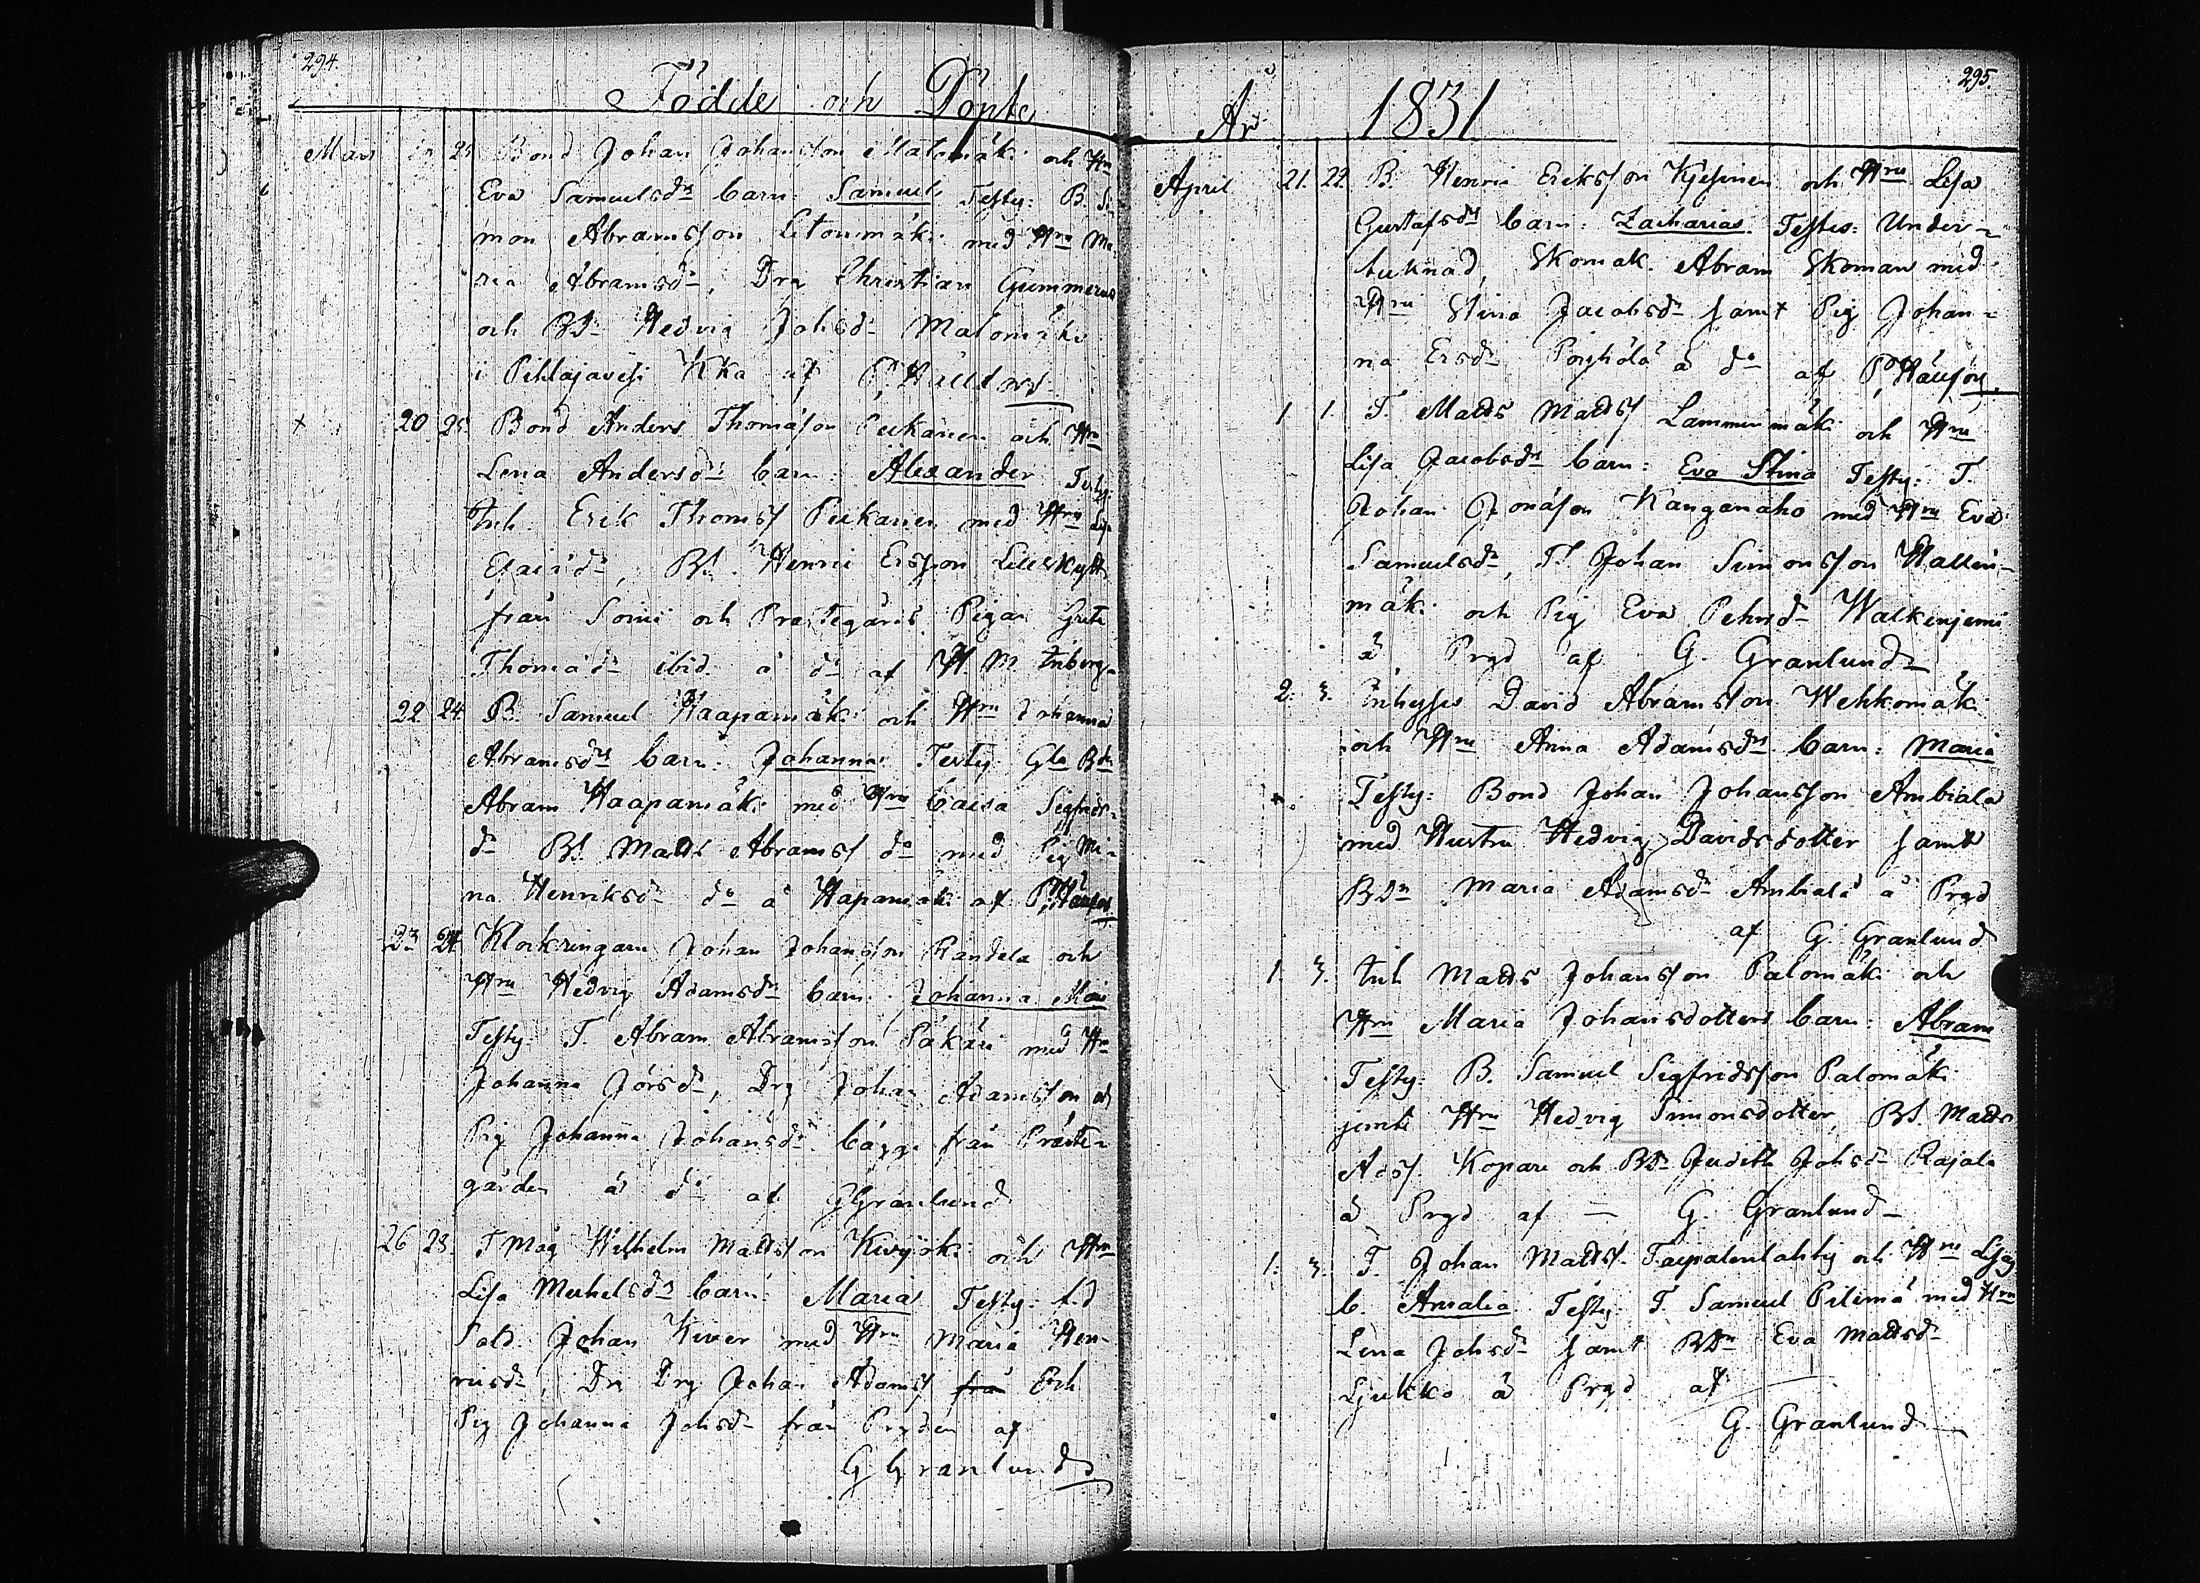 294.
Födde och Döpte
Mars 25 Bond Johan Johansson Malomäki och Hru
Eva Samuelsdrs barn: Samuel Testy: B. Si-
mon Abramsson Litonmäki med Hru Ma-
ria Abramsdr, Drg Christian Gummerus
och BDr Hedvig Johsdr Malomäki
i Pihlajavesi Kka af
20 25 Bond Anders Thomasson Peckanen och Hru
Lena Andersdrs barn: Alexander Testy:
Inh. Erik Thomss Peckanen med Hru
Esaiædr, BS. Henric Ersson
från Soini och Prästegårds Pigan Greta
Thomædr ibid. å do af H. M.
22 24 B. Samuel Haapamäki och Hru Johanna
Abramsdrs barn: Johanna Testy: Gla Bdn
Abram Haapamäki med Hru Caisa Sigfrids-
dr BS. Matts Abramss do med Pig Mi-
na Henriksdr do å Hapamäki af
23 24 Klockringarn Johan Johansson Randela och
Hru Hedvig Adamsdrs barn: Johanna Mari
Testy: T. Abram Abramsson Päkäri med Hru
Johanna Jörsdr, Drg Johan Adamsson och
Pig Johanna Johansdr bägge från Präste-
gården å do af G Granlund
26 28. T Måg Wilhelm Mattsson Kivijoki och Hru
Lisa Michelsdrs barn: Maria Testy: f.d
Sold. Johan Kiver med Hru Maria Hen-
ricsdr, Dr Drg Johan Adamss från och
Pig Johanna Johsdr från Prgden af
G Granlund
295.
År 1831
April 21. 22. B. Henric Eriksson Kjesinen och Hru Lisa
Gustafsdrs barn: Zacharias. Testes: Under-
tecknad, Skomak. Abram Skoman med
Hru Stina Jacobsdr samt Pig Johan-
na Ersdr å do af
1. 1. T. Matts Mattss Lamminmäki och Hru
Lisa Jacobsdrs barn: Eva Stina Testy: T.
Johan Jonasson Kanganaho med Hru Eva
Samuelsdr, TS Johan Simonsson Hallin-
mäki och Pig Eva Pehrsdr Walkenjemi
å Prgd af G. Granlund
2. 3. Inhyses David Abramsson Wehkomäki
och Hru Anna Adamsdrs barn: Maria
Testy: Bond Johan Johansson Ambiala
med Hustru Hedvig Davidsdotter samt
BDn Maria Adamsdr Ambiala å Prgd
af G. Granlund
1. 3. Inh Matts Johansson Palomäki och
Hru Maria Johansdotters barn: Abram
Testy: B. Samuel Sigfridsson Palomäki
jemte Hru Hedvig Simonsdotter, BS. Matts
Adss. Kopare och BDr Judith Johsdr Rajala
å Prgd af — G. Granlund
1. 3. T. Johan Mattss. Taipalenlahty och Hru
b. Amalia Testy: T. Samuel Pilimä med Hru
Lena Johsdr samt BDn Eva Mattsdr
Ljukko å Prgd af
G. Granlund